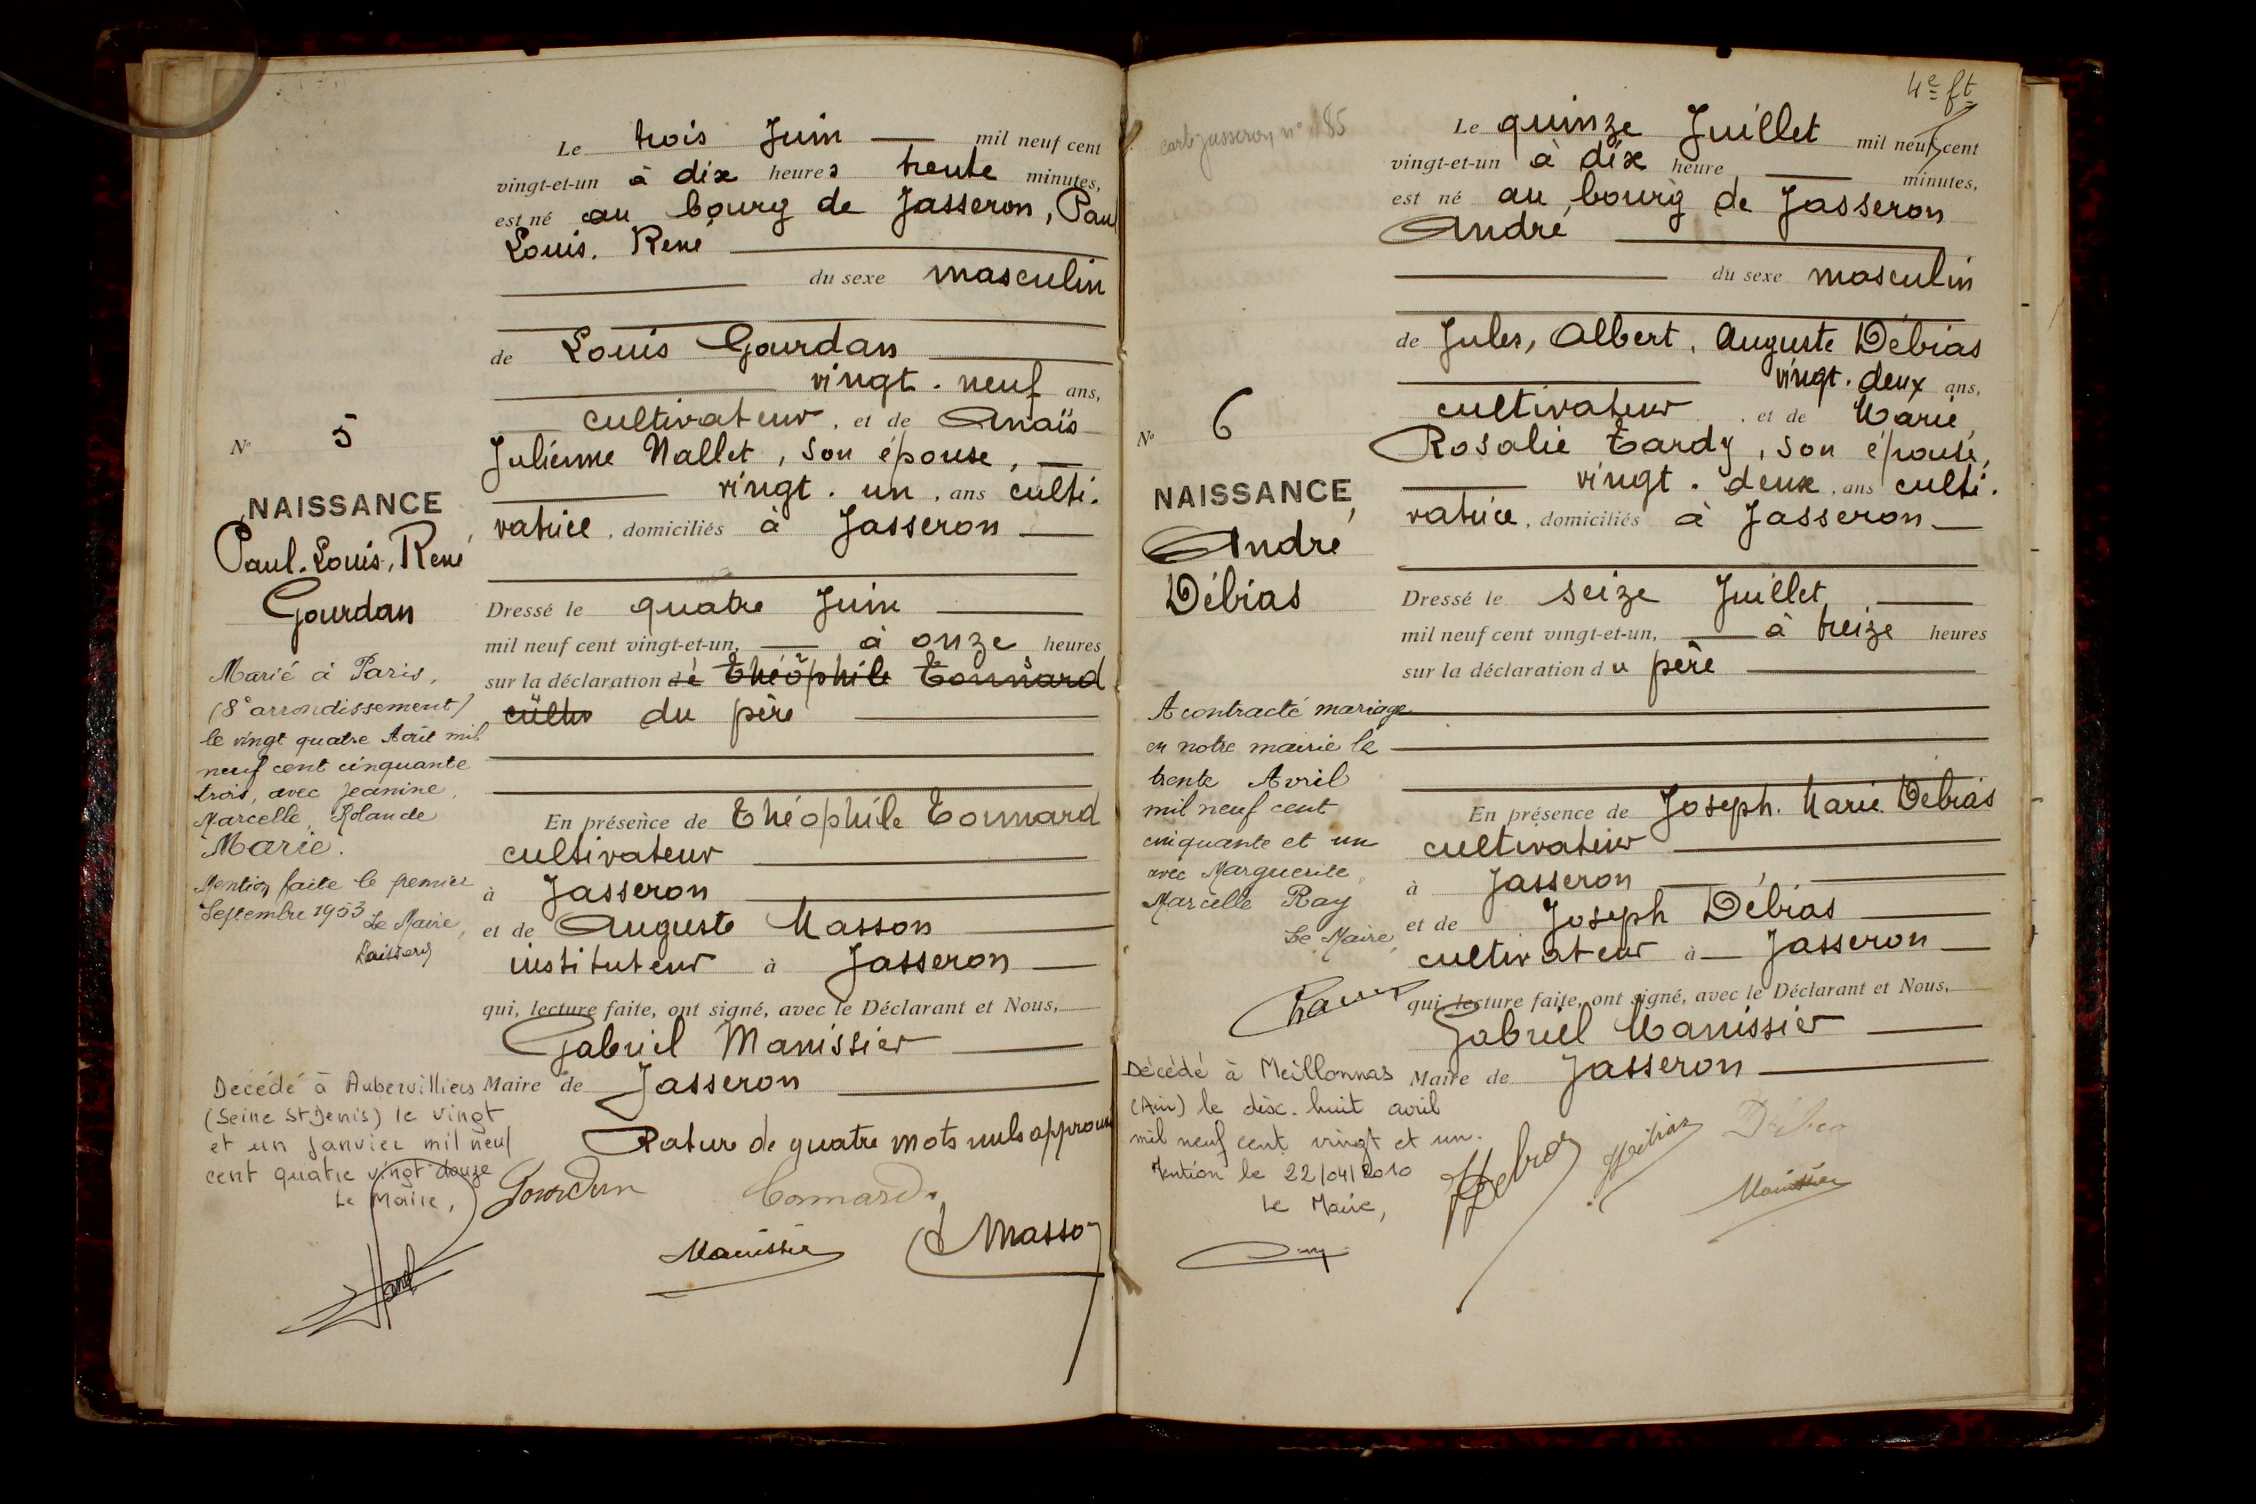 N° 5
NAISSANCE
Paul, Louis, René
Gourdan
Marié à Paris,
(8° arrondissement)
le vingt quatre Août mil
neuf cent cinquante
trois, avec Jeanine,
Marcelle, Rolande
Marie.
Mention faite le premier
Septembre 1953
Le Maire,
Décédé à Aubervilliers
(Seine St Denis) le vingt
et un Janvier mil neuf
cent quatre vingt douze
Le Maire,
Le trois Juin — mil neuf cent
vingt-et-un à dix heures trente minutes,
est né au bourg de Jasseron, Paul
Louis. René
du sexe masculin
de Louis Gourdan
vingt. neuf ans,
cultivateur, et de Anaïs
Julienne Nallet, son épouse, —
vingt. un, ans culti.
vatrice, domiciliés à Jasseron —
Dressé le quatre Juin
mil neuf cent vingt-et-un, — à onze heures
sur la déclaration de Théophile Tonnard
cultiv du père
En présence de Théophile Tonnard
cultivateur
à Jasseron
et de Auguste Masson
instituteur à Jasseron —
qui, lecture faite, ont signé, avec le Déclarant et Nous,
Gabriel Manissier
Maire de Jasseron
Rature de quatre mots nuls approuvé
Gourdan Tonnard
Manissier Masson
4e ft
carte Jasseron n° 185
N° 6
NAISSANCE
André
Débias
A contracté mariage
en notre mairie le
trente Avril
mil neuf cent
cinquante et un
avec Marguerite,
Marcelle Ray
Le Maire,
Décédé à Meillonnas
(Ain) le dix. huit avril
mil neuf cent vingt et un.
Mention le 22/04/2010
Le Maire,
Le quinze Juillet mil neuf cent
vingt-et-un à dix heure — minutes,
est né au bourg de Jasseron
André
du sexe masculin
de Jules, Albert, Auguste Débias
vingt. deux ans,
cultivateur, et de Marie,
Rosalie Tardy, son épouse,
vingt. deux, ans culti.
vatrice, domiciliés à Jasseron —
Dressé le seize Juillet
mil neuf cent vingt-et-un, — à treize heures
sur la déclaration du père
En présence de Joseph. Marie Débias
cultivateur
à Jasseron
et de Joseph Débias
cultivateur à — Jasseron —
qui, lecture faite, ont signé, avec le Déclarant et Nous,
Gabriel Manissier
Maire de Jasseron
Débias Débias
Manissier